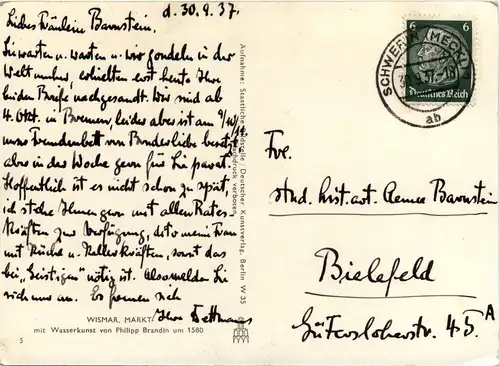 d. 30.9.37.
Liebes Fräulein Barnstein,
Sie warten u. warten u. wir gondeln in der
Welt umher, erhielten erst heute Ihre
beiden Briefe nachgesandt. Wir sind ab
4. Okt. in Bremen, leider aber ist am 9/10
unser Fremdenbett von Bruderliebe besetzt
aber in der Woche gern für Sie parat.
Hoffentlich ist es nicht schon zu spät,
ich stehe Ihnen gern mit allen Rates-
kräften zur Verfügung, dito meine Frau
mit Küche u. Kellerkräften, sonst das
bei „Geistigen" nötig ist. Also melden Sie
sich nur an. Es freuen sich
Ihre Dettmanns
WISMAR, MARKT
mit Wasserkunst von Philipp Brandin um 1580
5
Aufnahme: Staatliche Bildstelle / Deutscher Kunstverlag, Berlin W 35
Nachdruck verboten
6 6
Deutsches Reich
SCHWERIN (MECKL)
ab
Frl.
stud. hist. art. Aenne Barnstein
Bielefeld
Gütersloherstr. 45 A